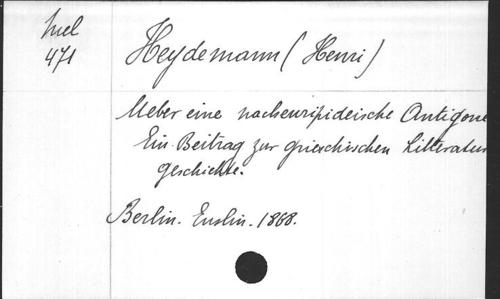 Mel
471
Heydemann (Henri)
Ueber eine nacheuripideische Antigone
Ein Beitrag zur griechischen Litteratur
geschichte.
Berlin. Enslin. 1868.